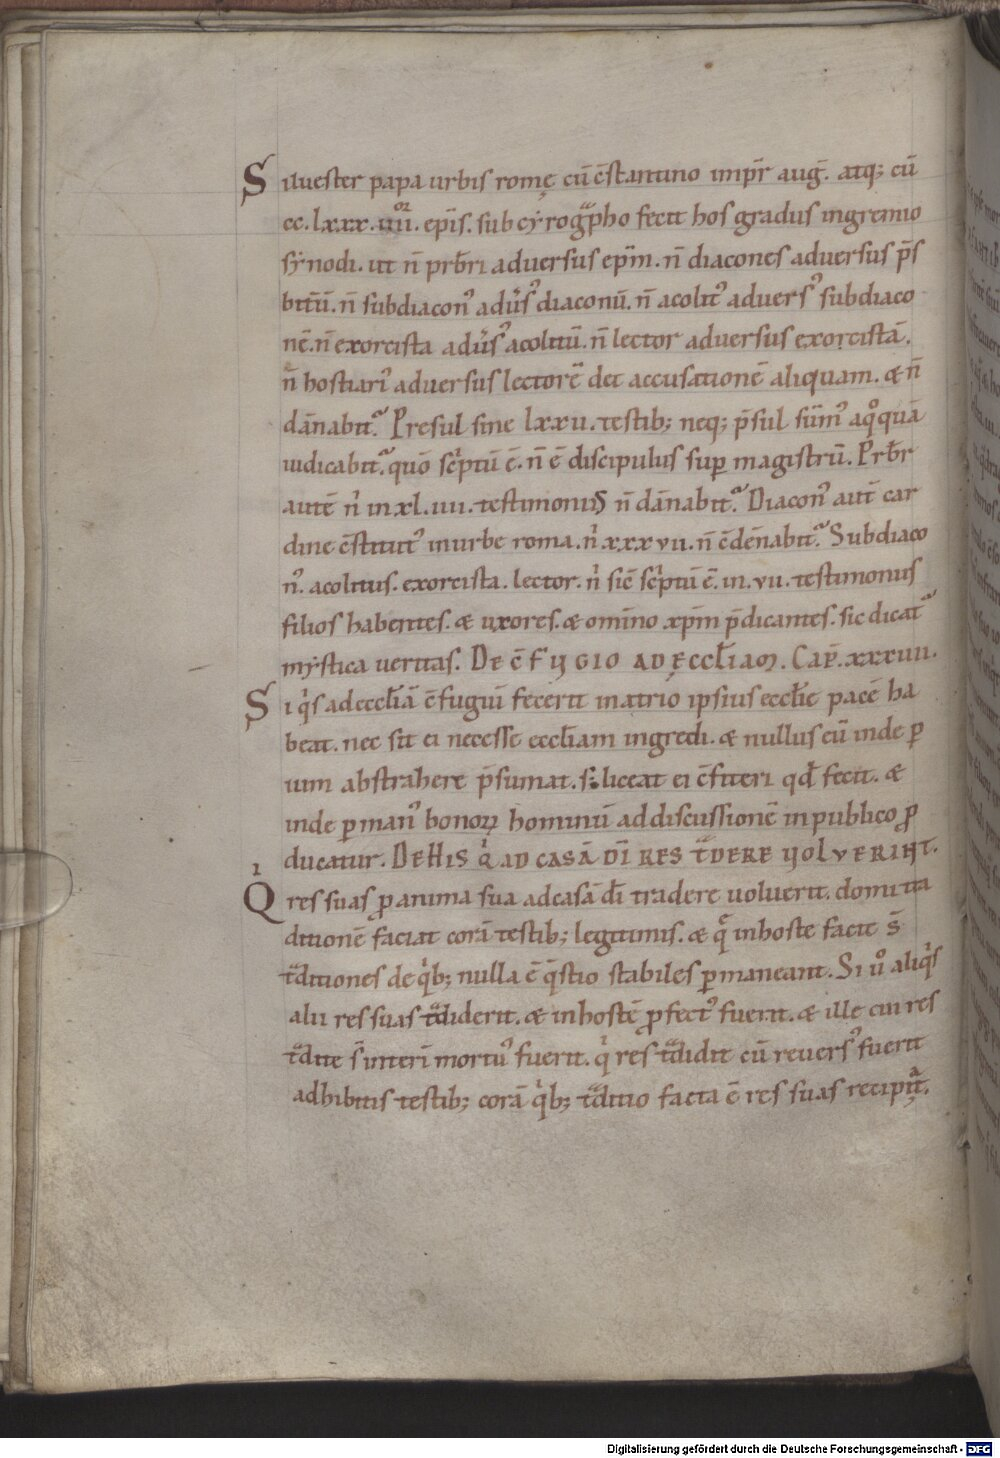 Siluester papa urbis romę cū c̄stantino imp̄r aug̅. atq; cū
cc. lxxx. uii^or. ep̄is. sub cẏrogͣpho fecit hos gradus in gremio
sẏnodi. ut n̄ prb̄ri adversus ep̄m. n̄ diacones adversus p̄s
bit̄ū. n̄ subdiaconꝰ adu̓sꝰ diaconū. n̄ acolitꝰ adversꝰ subdiaco
nē. n̄ exorcista adu̓sꝰ acolitū. n̄ lector adversus exorcistā.
n̄ hostiariꝰ adversus lectorē det accusationē aliquam. & n̄
dānabitᷓ. Presul sine lxxu. testib; neq; p̄sul sūmꝰ aqͦquā
iudicabitᷓ. quō sc̓ptū ē. n̄ ē discipulus suꝑ magistrū. Prb̄r
autē nͥ in xl. iiii. testimoniis n̄ dānabitᷓ. Diaconꝰ aut̄ car
dine c̄stitutꝰ in urbe roma. nͥ xxxvii. n̄ c̄dēnabitᷓ. Subdiaco
nꝰ. acolitus. exorcista. lector. nͥ sic̄ sc̓ptū ē. in. vii. testimoniis
filios habentes. & uxores. & omīno xp̄m p̄dicantes. sic dicatᷓ
mẏstica veritas. DE C̄FUGIO AD ĘCCL̄IAM. Cap̄. xxxvii.
Si qͥs ad eccl̄iā c̄fugiū fecerit in atrio ipsius eccl̄ie pacē ha
beat. nec sit ei necesse eccl̄iam ingredi. & nullus eū inde ꝑ
uim abstrahere p̄sumat. s; liceat ei c̄fiteri qd̄ fecit. &
inde ꝑ manꝰ bonoꝝ hominū ad discussionē in publico ꝓ
ducatur. DE HIS Qͥ AD CASĀ DI̅ RES TͣDERE UOLVERINT.
Qͥ res suas ꝓ anima sua ad casā dī tradere uoluerit. domi tra
ditionē faciat corā testib; legitimis. & qͣ in hoste facit s̄
tͣditiones de qͥb; nulla ē q̄stio stabiles ꝑmaneant. Si uͦ aliqͥs
alii res suas tͣdiderit. & in hostē ꝓfectꝰ fuerit. & ille cui res
tͣdite s̄ interī mortuꝰ fuerit. qͥ res tͣdidit cū reuersꝰ fuerit
adhibitis testib; corā qͥb; tͣditio facta ē res suas recipi̇tᷓ.
Digitalisierung gefördert durch die Deutsche Forschungsgemeinschaft - DFG